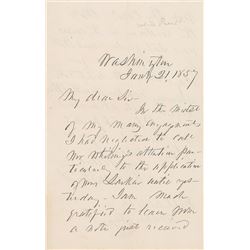 Washington
Jany 21. 1857
My dear Sir
In the midst
of my many engagements
I had neglected to call
Mr Whiting's attention par-
ticularly to the application
of Mr until yes-
terday. I am much
gratified to learn from
a note just received